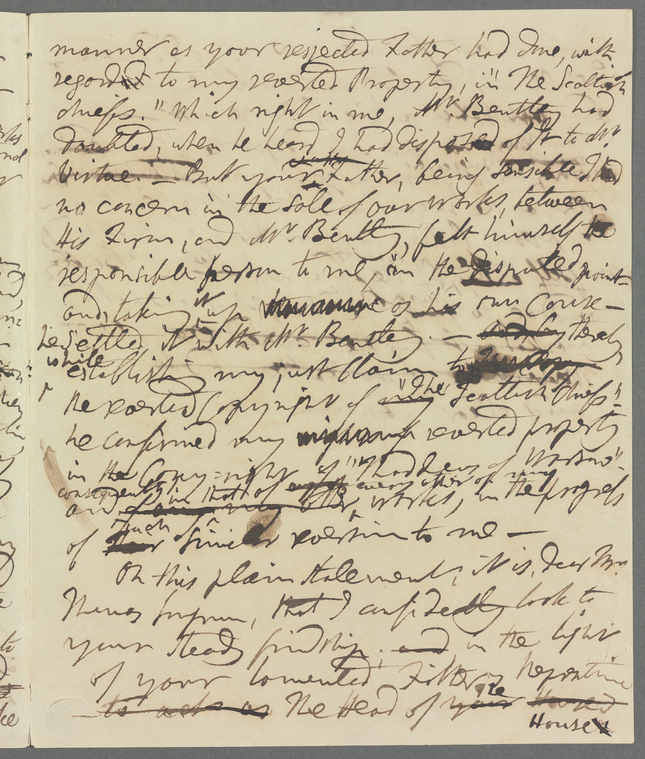 manner as your respected Father had done, with
regard to my reverted Property, in "The Scottish
chiefs." Which right in me, Mr. Bentley had
doubted, when he heard I had disposed of It to Mr.
Virtue. — But your Father, being sensible I had
no concern in the Sale of our works, between
His Firm, and Mr. Bentley, felt himself the
responsible person to me, in the disputed point
and taking it up of his own Course —
he settled it with Mr. Bentley. — thereby
while establishing my just claim to
the reverted Copyright of "The Scottish Chiefs"
he confirmed my reverted property
in the Copy-right of "Thaddeus of Warsaw"
and consequently in that of every other of my works, in the progress
of such similar reversion to me —
On this plain statement, it is, dear Mr.
I confidently look to
your steady friendship. and in the light
of your lamented Father,
to act as the Head of the
House